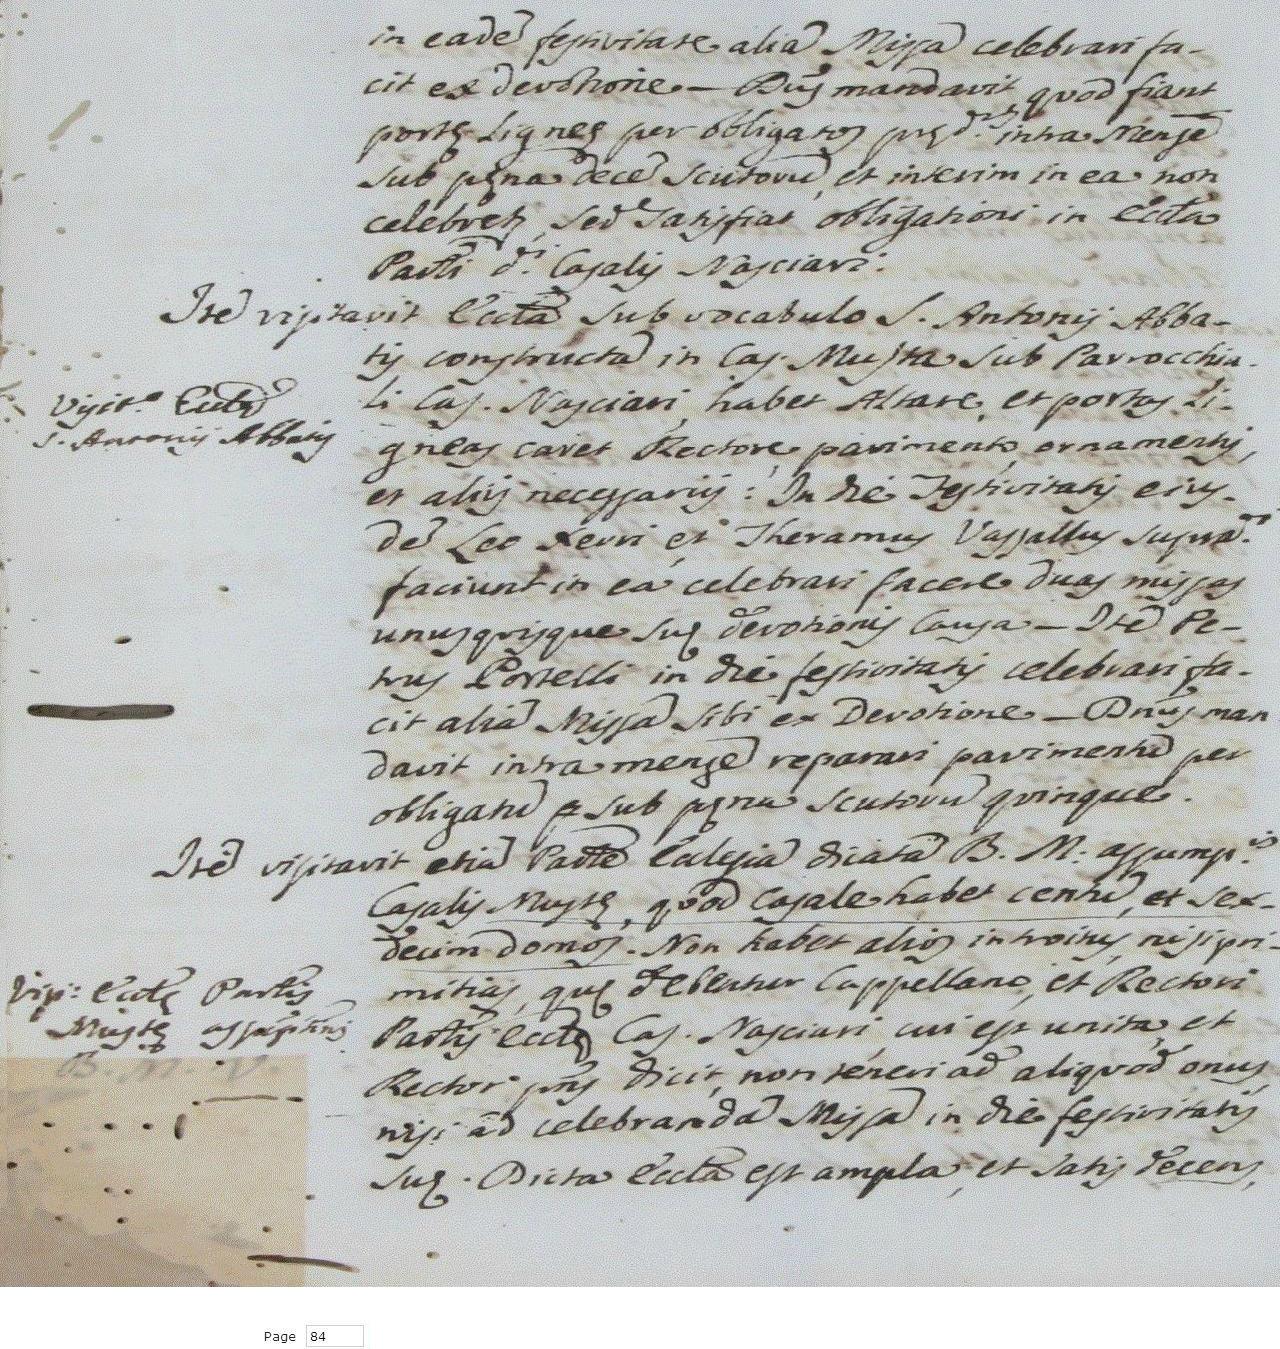 in eadē festivitate aliā Missā celebrari fa-
cit ex devotione — Dñs mandavit quod fiant
portę Lignęę per obligatos pręd.ᵗᵃ intra Mensē
sub pęna decē scutorū, et interim in ea non
celebret, sed satisfiat obligationi in Eccła
Parłi d.ⁱ Casalis Nasciari.
Itē visitavit Eccłā sub vocabulo S. Antonij Abba-
tis constructā in Cas. Musta sub Parrocchia-
li Cas. Nasciari, habet Altare, et portas Li-
gneas caret Rectore, pavimento, ornamentis,
et alijs necessarijs: In die Festivitatis eius-
dē Leo Xerri et Theramus Vassallus supra.
faciunt in ea celebrari facere duas missas
unusquisque suę devotionis Causa — Itē Pe-
trus Portelli in die festivitatis celebrari fa-
cit aliā Missā sibi ex Devotione — Dñs man
davit intra mensē reparari pavimentū per
obligatū sub pęna scutorū quinque.
Itē visitavit etiā Parłē Eclesiā dicatā B. M: assump.ⁿⁱˢ
Casalis Mustę, quod Casale habet centū, et sex-
decim domos. Non habet alios introitus, nisi pri-
mitias, quę debentur Cappellano, et Rectori
Parłis Eccłę Cas. Nasciari, cui est unita, et
Rector pñs dicit, non teneri ad aliquod onus,
nisi ad celebrandā Missā in die festivitatis
suę. Dicta Eccła est ampla, et satis decens,
Visit.º Eccłę
S. Antonij Abbatis
Visi: Eccłę Parłis
Mustę assūptionis
B. M. V.
Page 84